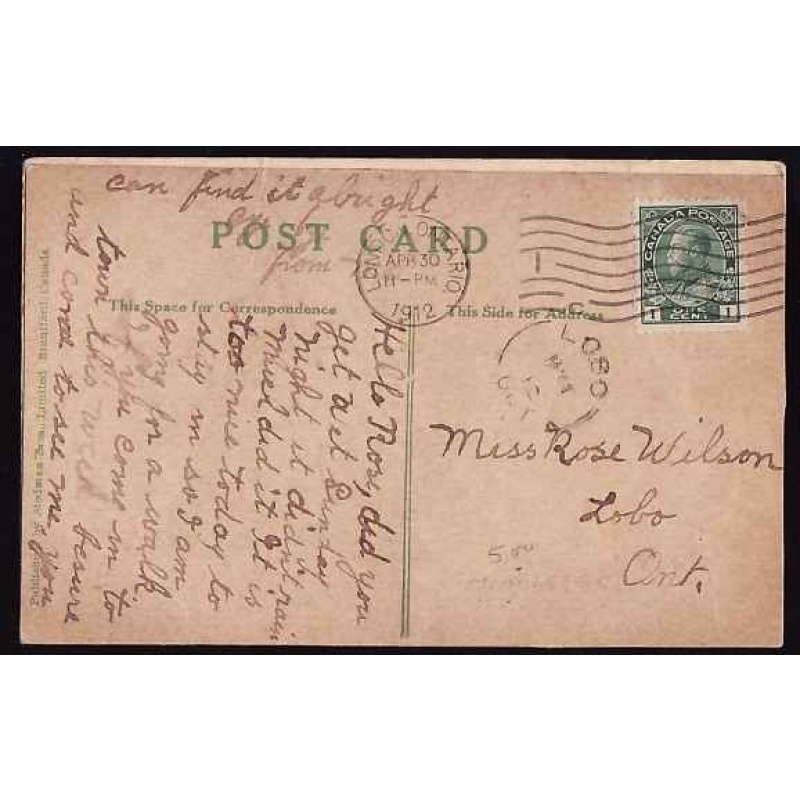 can find it alright
from
POST CARD
This Space for Correspondence
This Side for Address
LONDON, ONTARIO
APR 30
11-PM
1912
CANADA POSTAGE
1 ONE CENT 1
LOBO
Miss Rose Wilson
Lobo
Ont.
5.00
Hello Rose, did you
get wet Sunday
night it didn't rain
much did it It is
too nice today to
stay in so I am
going for a walk.
If you come in to
town this week besure
and come to see me you
Published by Stedman Bros., Limited Brantford, Canada